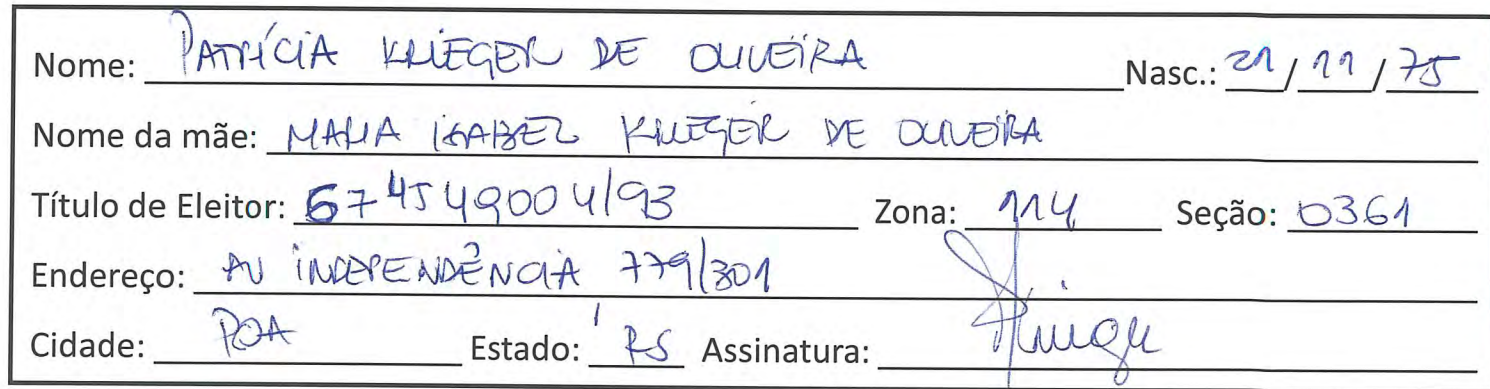 Nome: PATRÍCIA KRIEGER DE OLIVEIRA Nasc.: 21/11/75
Nome da mãe: MARIA ISABEL KRIEGER DE OLIVEIRA
Título de Eleitor: 674549004/93 Zona: 114 Seção: 0361
Endereço: AV INDEPENDÊNCIA 779/301
Cidade: POA Estado: RS Assinatura: